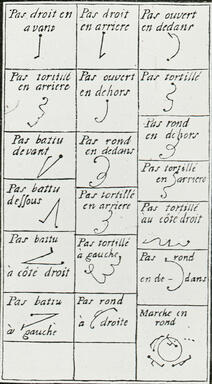 Pas droit en
avant
Pas droit
en arriere
Pas ouvert
en dedans
Pas tortillé
en arriere
Pas ouvert
en dehors
Pas tortillé
Pas battu
devant
Pas rond
en dedans
Pas rond
en dehors
Pas tortillé
en arriere
Pas battu
dessous
Pas tortillé
en arriere
Pas tortillé
au côté droit
Pas battu
à côté droit
Pas tortillé
à gauche
Pas rond
en de dans
Pas battu
à gauche
Pas rond
à droite
Marche en
rond